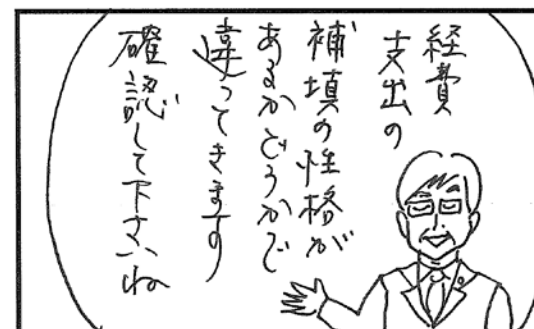 経費
支出の
補填の性格が
あるかどうかで
違ってきます
確認して下さいね